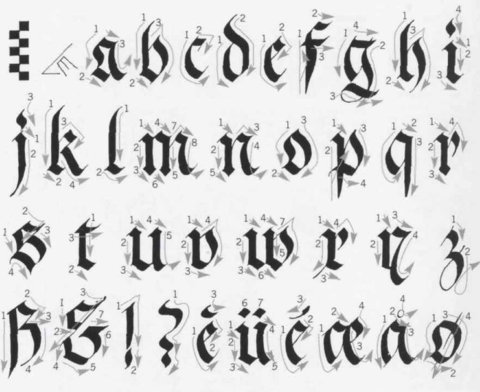 a b c d e f g h i
j k l m n o p q r
s t u v w x y z
ß & ! ? ě ü æ å ø